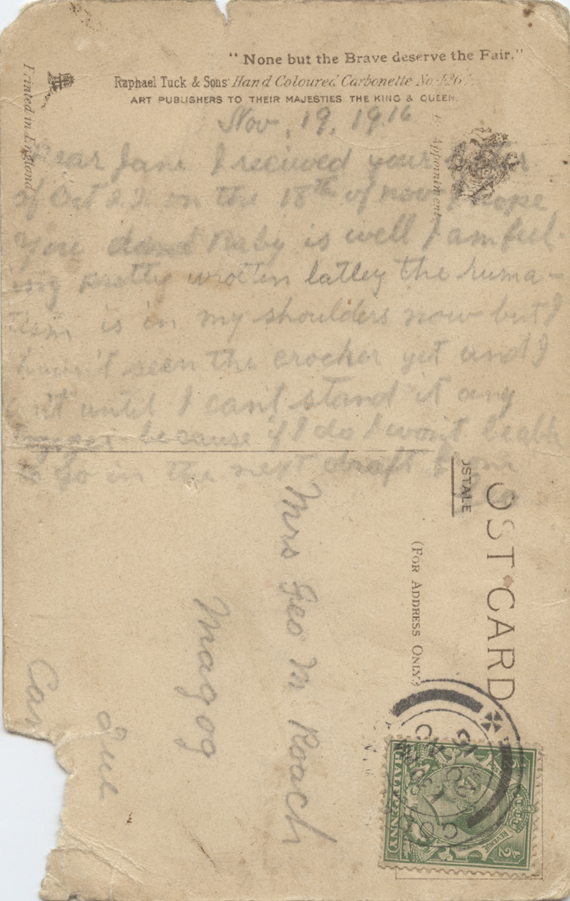 "None but the Brave deserve the Fair."
Raphael Tuck & Sons' Hand Coloured Carbonette No.
ART PUBLISHERS TO THEIR MAJESTIES THE KING & QUEEN.
Printed in England
Appointment
Nov, 19, 1916
Dear Jane I recieved your letter
of Oct on the 18th of nov I hope
you Baby is well I am feel-
ing pretty wrotten latley the ruma-
tism is in my shoulders now but I
havn't seen the crocker yet and I
until I can't stand it any
because if I do I won't be able
to go in the next draft from
Geo
POSTALE
POST CARD
(FOR ADDRESS ONLY)
Mrs Geo M Roach
Magog
Que
Can
HALFPENNY